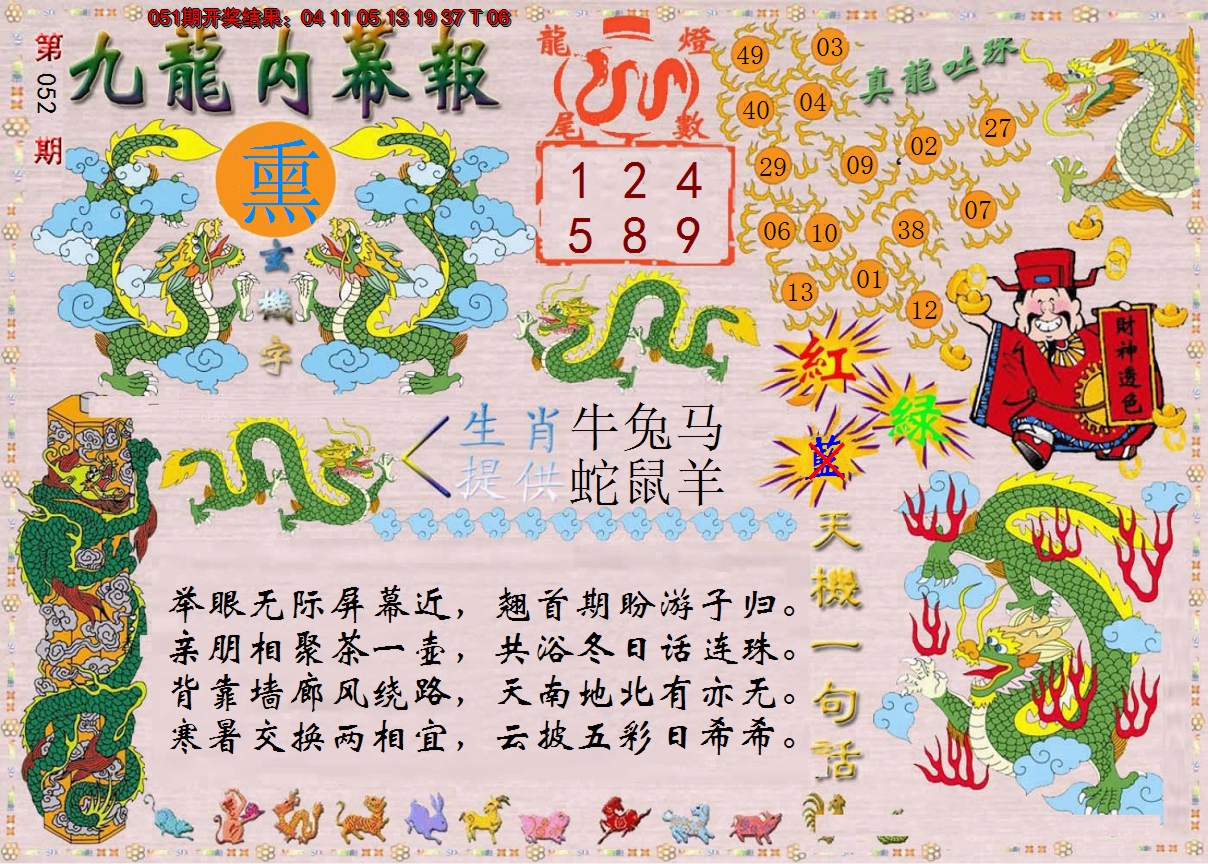 051期开奖结果：04 11 05 13 19 37 T 06
第
052
期
九龍内幕報
熏
玄
機
字
龍 燈
尾 數
1 2 4
5 8 9
真龍吐珠
49 03
40 04
27
02
29 09
07
06 10 38
01
13 12
紅
綠
藍
財神透色
生肖 牛兔马
提供 蛇鼠羊
举眼无际屏幕近，翘首期盼游子归。
亲朋相聚茶一壶，共浴冬日话连珠。
背靠墙廊风绕路，天南地北有亦无。
寒暑交换两相宜，云披五彩日希希。
天機一句話